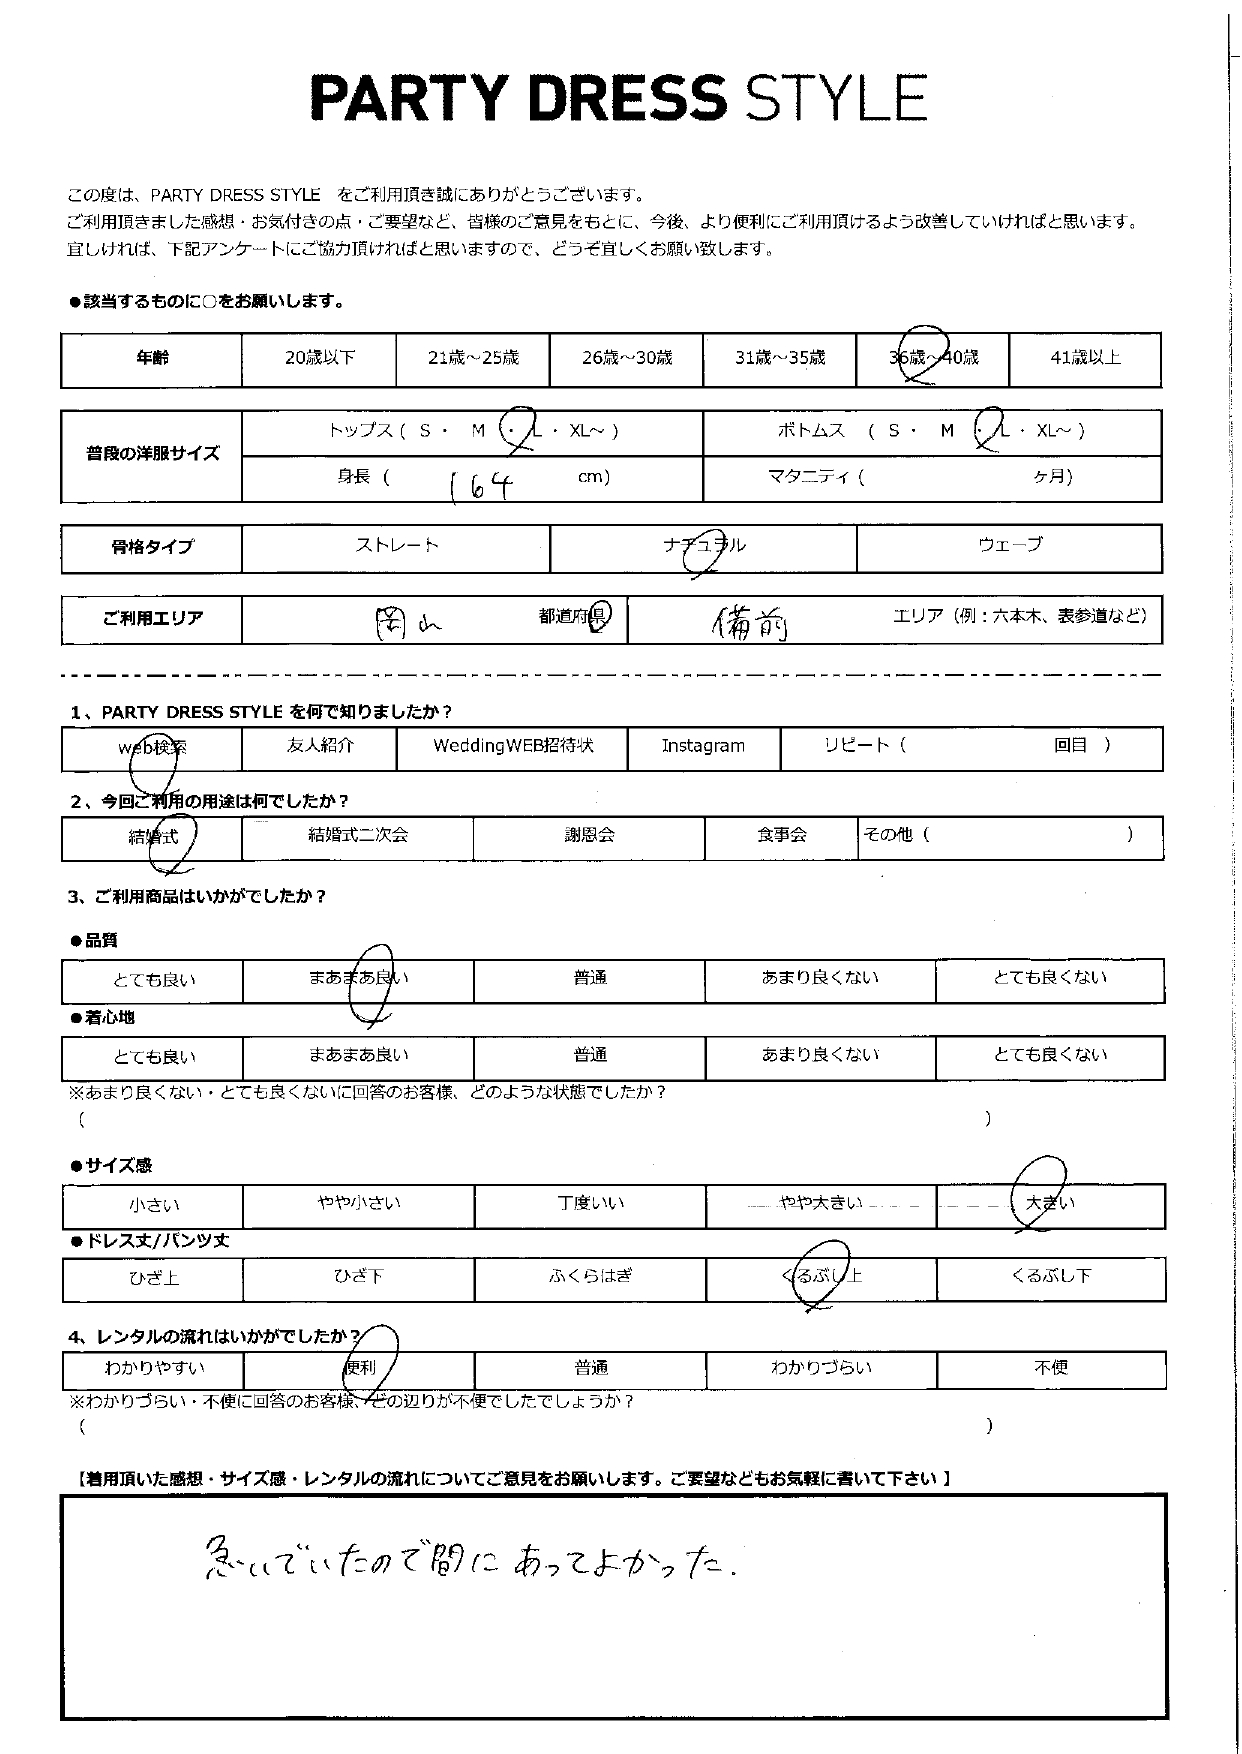 PARTY DRESS STYLE
この度は、PARTY DRESS STYLE をご利用頂き誠にありがとうございます。
ご利用頂きました感想・お気付きの点・ご要望など、皆様のご意見をもとに、今後、より便利にご利用頂けるよう改善していければと思います。
宜しければ、下記アンケートにご協力頂ければと思いますので、どうぞ宜しくお願い致します。
●該当するものに○をお願いします。
年齢 20歳以下 21歳～25歳 26歳～30歳 31歳～35歳 36歳～40歳 41歳以上
普段の洋服サイズ
トップス ( S ・ M ・ L ・ XL～ ) ボトムス ( S ・ M ・ L ・ XL～ )
身長 ( 164 cm) マタニティ ( ヶ月)
骨格タイプ ストレート ナチュラル ウェーブ
ご利用エリア 岡山 都道府県 備前 エリア（例：六本木、表参道など）
1、PARTY DRESS STYLE を何で知りましたか？
web検索 友人紹介 WeddingWEB招待状 Instagram リピート ( 回目 )
2、今回ご利用の用途は何でしたか？
結婚式 結婚式二次会 謝恩会 食事会 その他 ( )
3、ご利用商品はいかがでしたか？
●品質
とても良い まあまあ良い 普通 あまり良くない とても良くない
●着心地
とても良い まあまあ良い 普通 あまり良くない とても良くない
※あまり良くない・とても良くないに回答のお客様、どのような状態でしたか？
( )
●サイズ感
小さい やや小さい 丁度いい やや大きい 大きい
●ドレス丈/パンツ丈
ひざ上 ひざ下 ふくらはぎ くるぶし上 くるぶし下
4、レンタルの流れはいかがでしたか？
わかりやすい 便利 普通 わかりづらい 不便
※わかりづらい・不便に回答のお客様、どの辺りが不便でしたでしょうか？
( )
【着用頂いた感想・サイズ感・レンタルの流れについてご意見をお願いします。ご要望などもお気軽に書いて下さい 】
急いでいたので間にあってよかった.